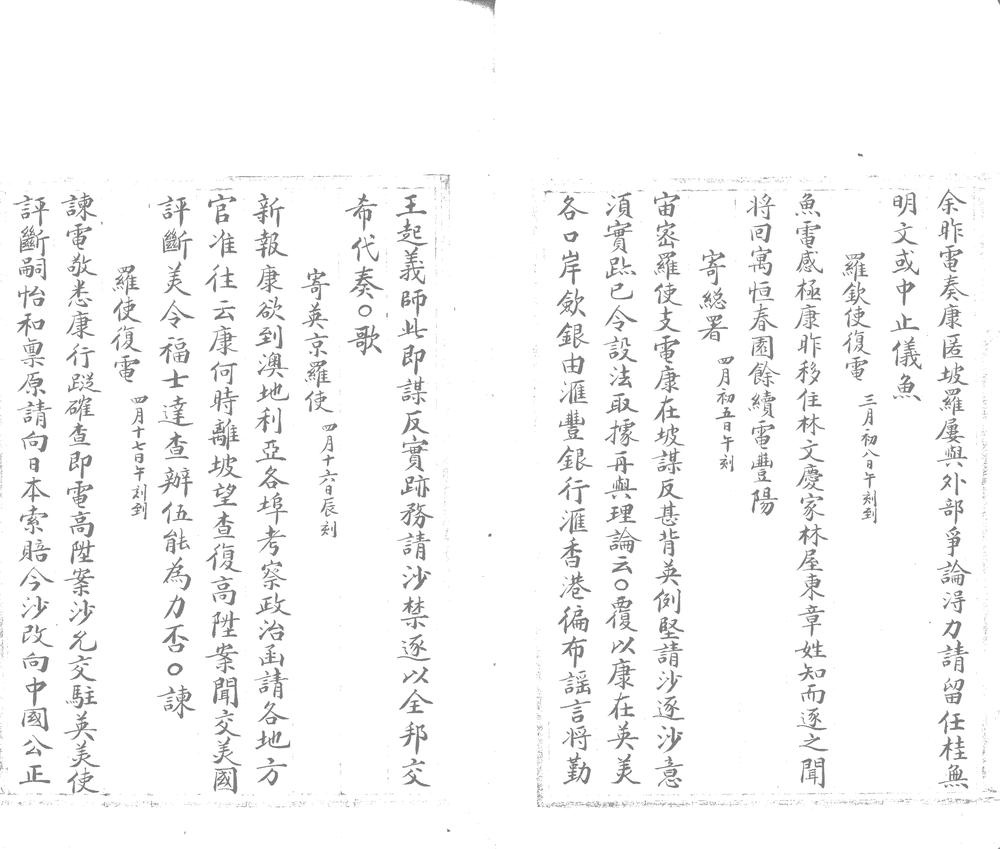 余昨電奏康匿坡羅屢與外部爭論淂力請留任桂無
明文或中止儀魚
羅欽使復電 三月初八日午刻到
魚電感極康昨移住林文慶家林屋東章姓知而逐之聞
將回寓恒春園餘續電豐陽
寄総署 四月初五日午刻
宙密羅使支電康在坡謀反甚背英例堅請沙逐沙意
湏實跡已令設法取據再與理論云○覆以康在英美
各口岸斂銀由滙豐銀行滙香港徧布謡言将勤
王起義師此即謀反實跡務請沙禁逐以全邦交
希代奏○歌
寄英京羅使 四月十六日辰刻
新報康欲到澳地利亞各埠考察政治函請各地方
官准往云康何時離坡望查復高陞案聞交美國
評斷美令福士達查辦伍能為力否○諫
羅使復電 四月十七日午刻到
諫電敬悉康行蹤確查即電高陞案沙允交駐英美使
評斷嗣怡和稟原請向日本索賠今沙改向中國公正